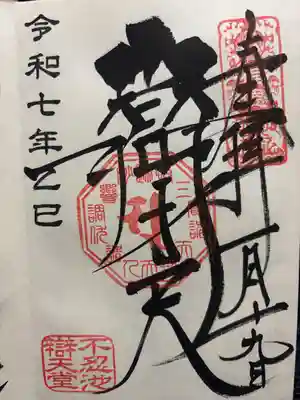 奉拝
一月十九日
辯才天
令和七年乙巳
不忍池
辯天堂